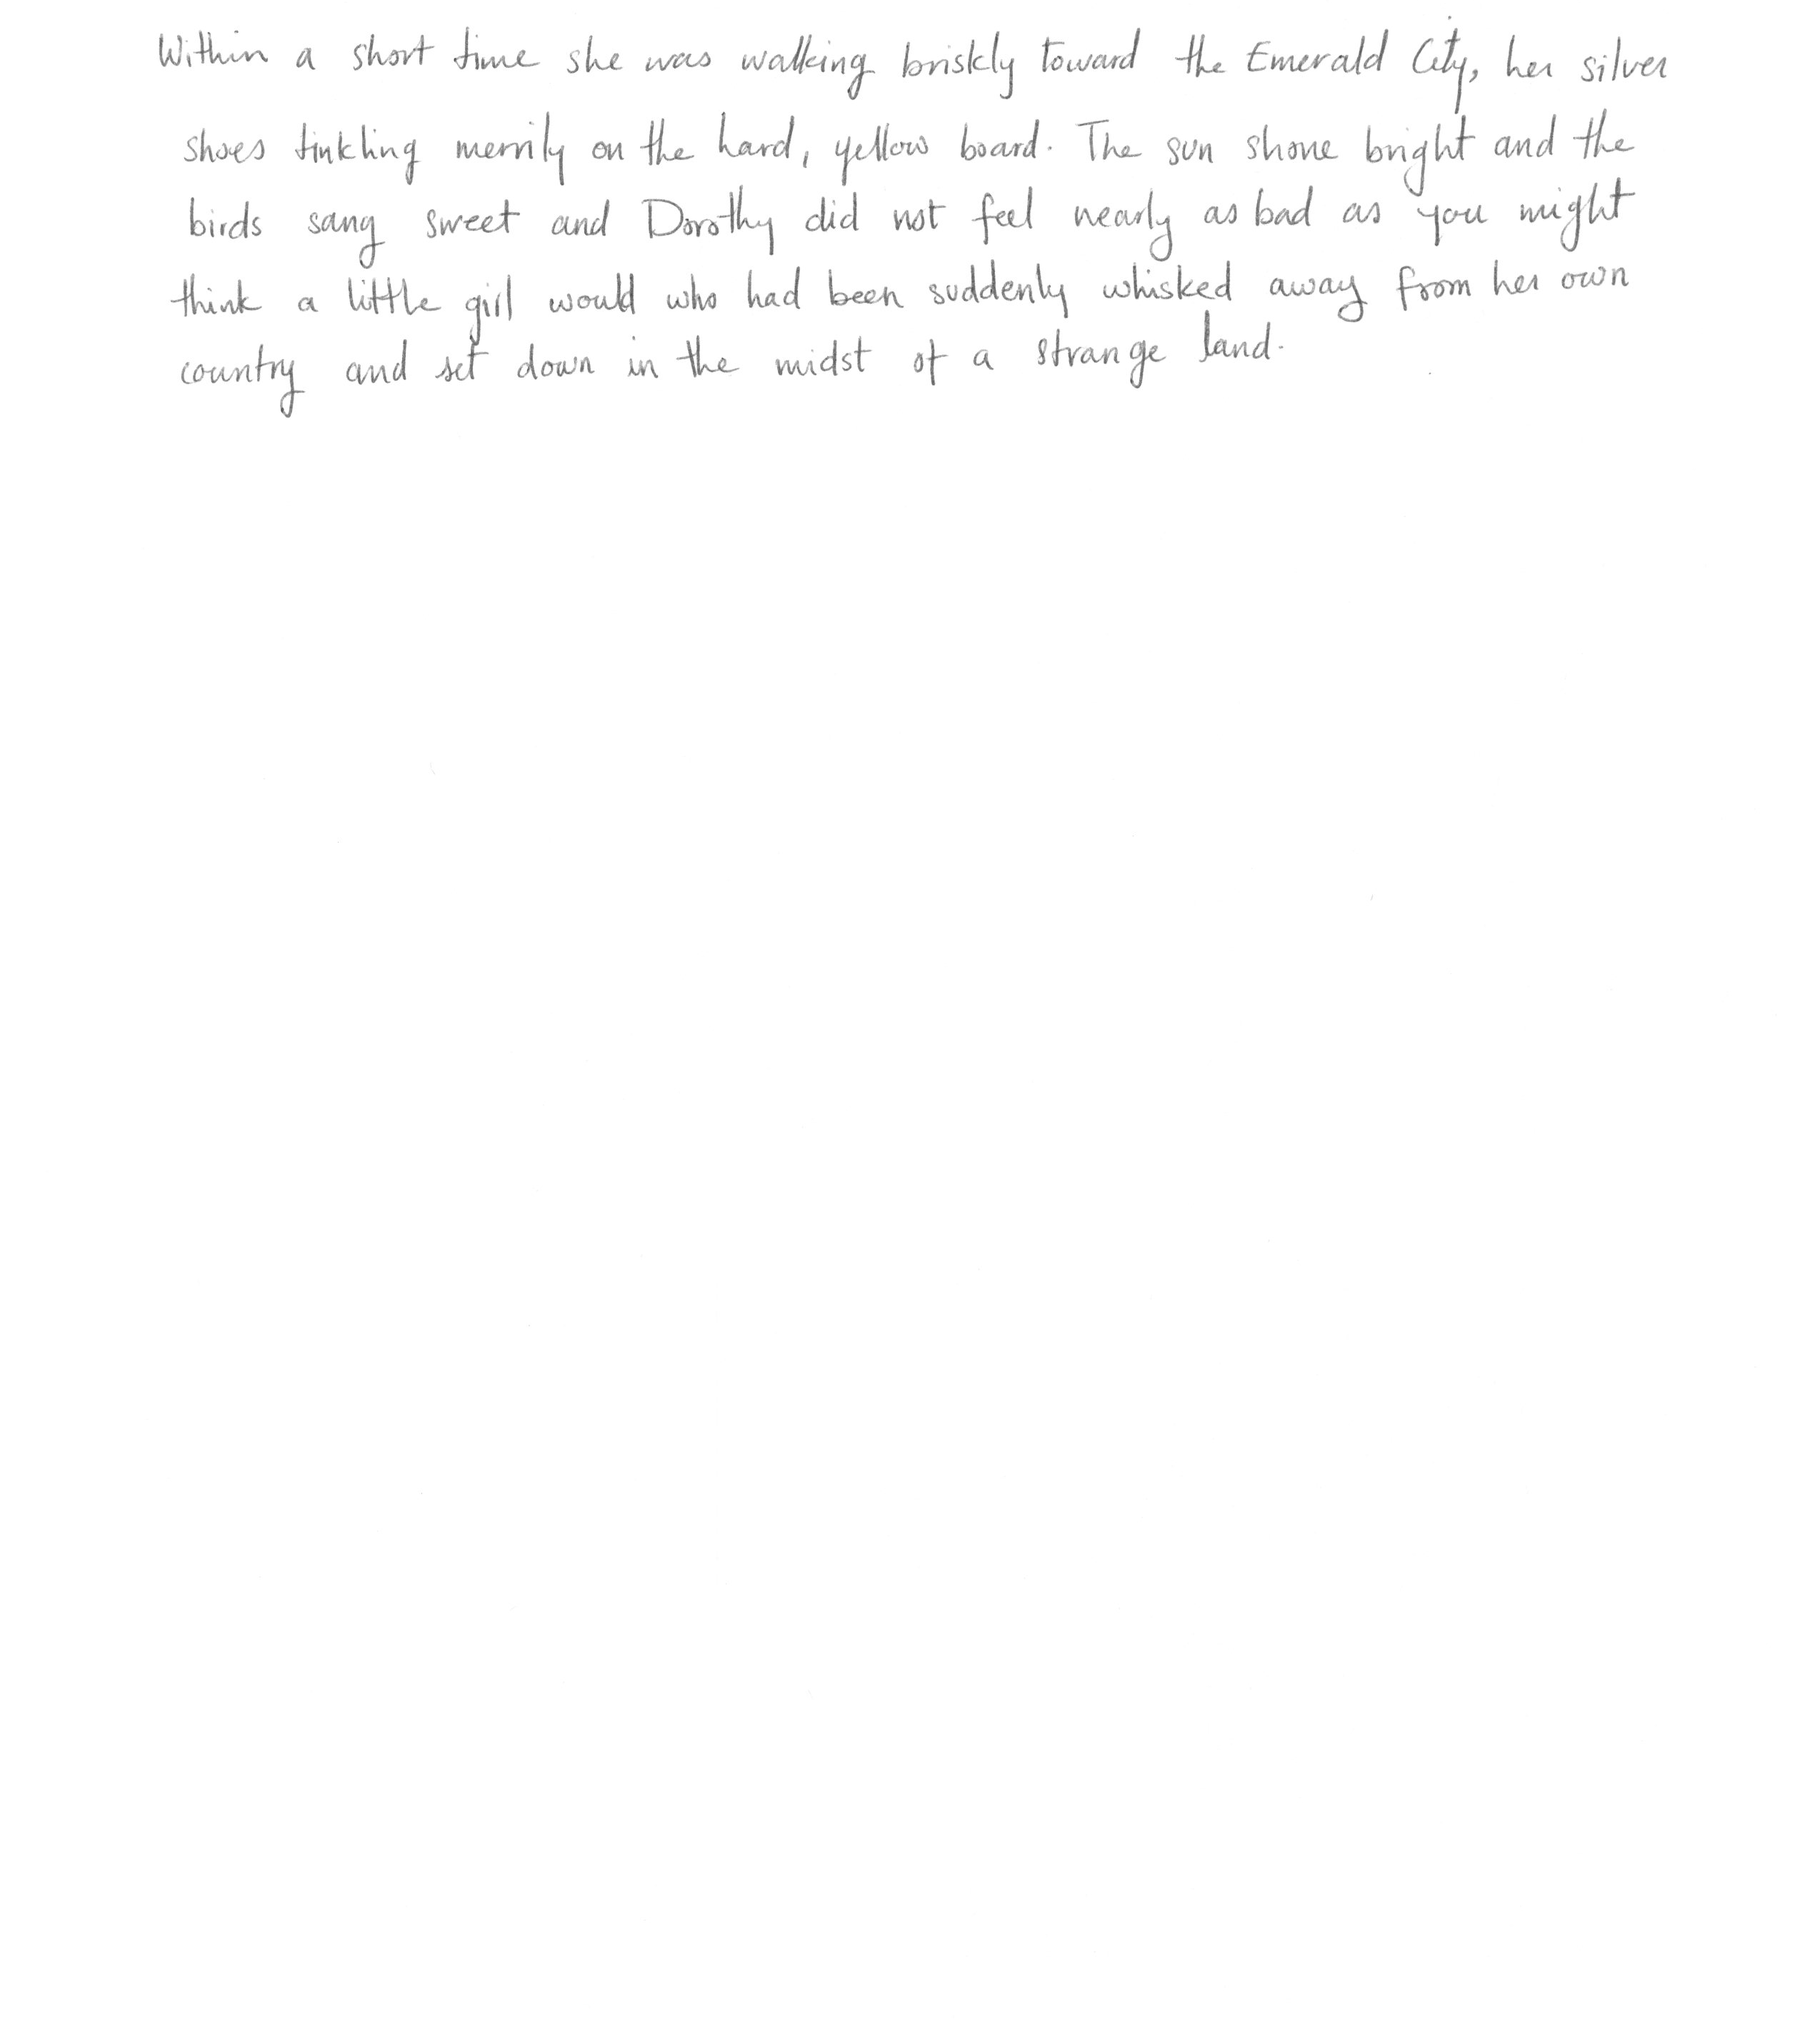 Within a short time she was walking briskly toward the Emerald City, her silver
shoes tinkling merrily on the hard, yellow board. The sun shone bright and the
birds sang sweet and Dorothy did not feel nearly as bad as you might
think a little girl would who had been suddenly whisked away from her own
country and set down in the midst of a strange land.